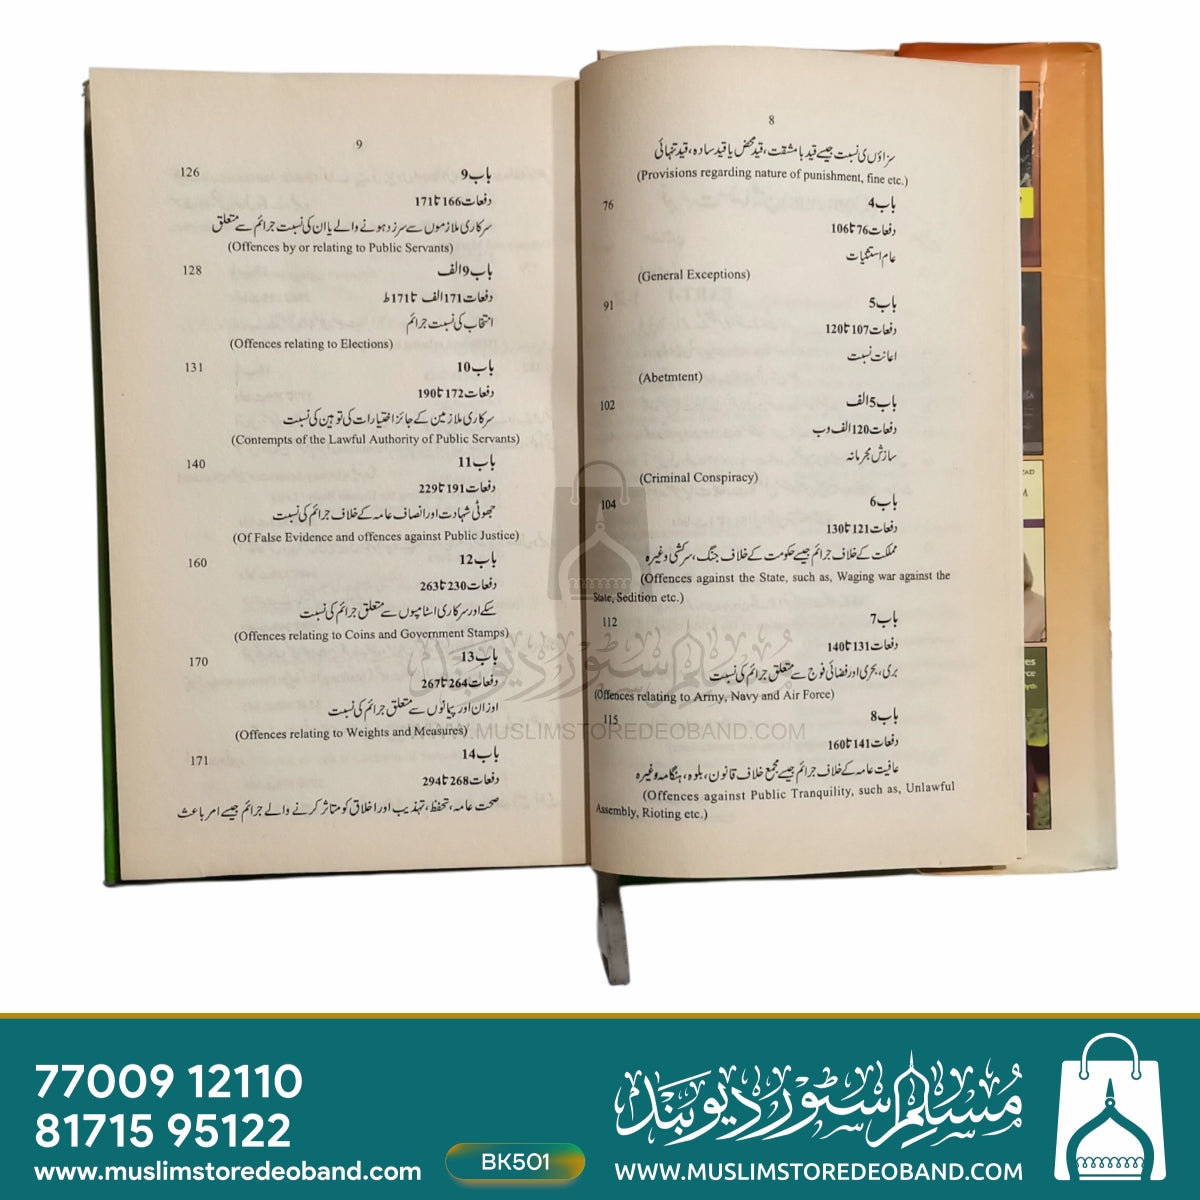 8
سزاؤں کی نسبت جیسے قید با مشقت، قید محض یا قید سادہ، قید تنہائی
(Provisions regarding nature of punishment, fine etc.)
76 باب 4
دفعات 76 تا 106
عام استثنیات
(General Exceptions)
91 باب 5
دفعات 107 تا 120
اعانت نسبت
(Abetmtent)
102 باب 5 الف
دفعات 120 الف وب
سازش مجرمانہ
(Criminal Conspiracy)
104 باب 6
دفعات 121 تا 130
مملکت کے خلاف جرائم جیسے حکومت کے خلاف جنگ، سرکشی وغیرہ
(Offences against the State, such as, Waging war against the
State, Sedition etc.)
112 باب 7
دفعات 131 تا 140
بری، بحری اور فضائی فوج سے متعلق جرائم کی نسبت
(Offences relating to Army, Navy and Air Force)
115 باب 8
دفعات 141 تا 160
عافیت عامہ کے خلاف جرائم جیسے مجمع خلاف قانون، بلوہ، ہنگامہ وغیرہ
(Offences against Public Tranquility, such as, Unlawful
Assembly, Rioting etc.)
9
126 باب 9
دفعات 166 تا 171
سرکاری ملازموں سے سرزد ہونے والے یا ان کی نسبت جرائم سے متعلق
(Offences by or relating to Public Servants)
128 باب 9 الف
دفعات 171 الف تا 171 ط
انتخاب کی نسبت جرائم
(Offences relating to Elections)
131 باب 10
دفعات 172 تا 190
سرکاری ملازمین کے جائز اختیارات کی توہین کی نسبت
(Contempts of the Lawful Authority of Public Servants)
140 باب 11
دفعات 191 تا 229
جھوٹی شہادت اور انصاف عامہ کے خلاف جرائم کی نسبت
(Of False Evidence and offences against Public Justice)
160 باب 12
دفعات 230 تا 263
سکے اور سرکاری اسٹامپوں سے متعلق جرائم کی نسبت
(Offences relating to Coins and Government Stamps)
170 باب 13
دفعات 264 تا 267
اوزان اور پیمانوں سے متعلق جرائم کی نسبت
(Offences relating to Weights and Measures)
171 باب 14
دفعات 268 تا 294
صحت عامہ، تحفظ، تہذیب اور اخلاق کو متاثر کرنے والے جرائم جیسے امر باعث
مسلم سٹور دیوبند
WWW.MUSLIMSTOREDEOBAND.COM
77009 12110
81715 95122
www.muslimstoredeoband.com
BK501
مسلم سٹور دیوبند
WWW.MUSLIMSTOREDEOBAND.COM